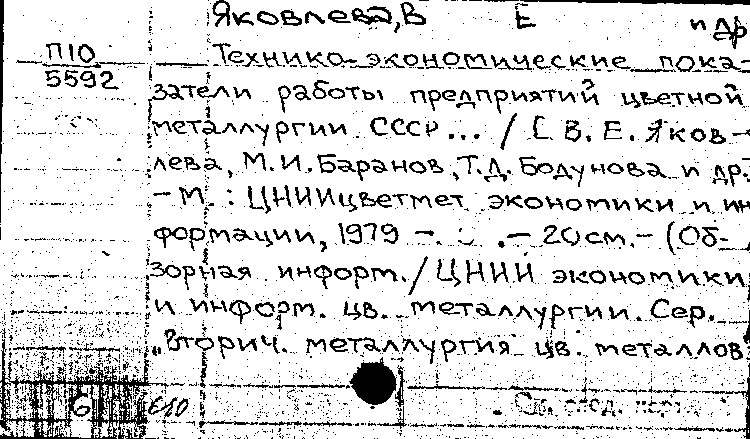 Яковлева, В Е и др
П10
5592
Технико-экономические пока-
затели работы предприятий цветной
металлургии СССР ... / [ В. Е. Яков-
лева, М. И. Баранов, Т. Д. Бодунова и др.
- М. : ЦНИИцветмет экономики и ин
формации, 1979 - . - 20 см. - (Об-
зорная информ. / ЦНИИ экономики
и информ. цв. металлургии. Сер.
„Вторич. металлургия цв. металлов"
6 610
См. след. карт.